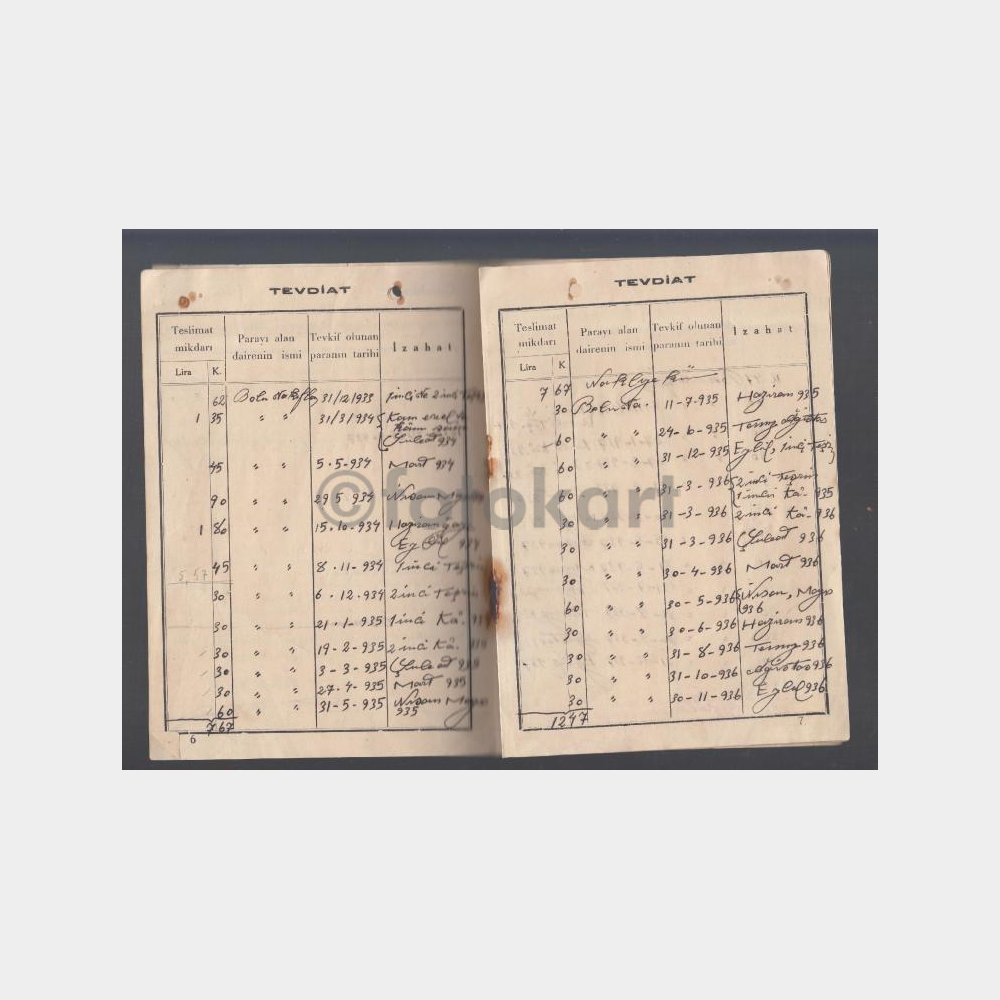 TEVDİAT
Teslimat mikdarı
Parayı alan dairenin ismi
Tevkif olunan paranın tarihi
İzahat
Lira K.
62 Bolu 31/12/933
1 35 " " 31/3/934
Şubat 934
45 " " 5-5-934 Mart 934
90 " " 29 5 934 Nisan
1 80 " " 15-10-934 Haziran
Eylül
45 " " 8-11-934 1inci
5,57
30 " " 6-12-934 2inci Teşrin
30 " " 21-1-935 1inci Kâ-
30 " " 19-2-935 2inci Kâ-
30 " " 3-3-935 Şubat
30 " " 27-4-935 Mart 935
60 " " 31-5-935 Nisan Mayıs
935
767
6
TEVDİAT
Teslimat mikdarı
Parayı alan dairenin ismi
Tevkif olunan paranın tarihi
İzahat
Lira K.
7 67
30 11-7-935 Haziran 935
60 " " 24-6-935 Ağustos
60 " " 31-12-935 Eylül, 1inci
60 " " 31-3-936 2inci Teşrin
1inci Kâ- 935
30 " " 31-3-936 2inci Kâ- 936
30 " " 31-3-936 Şubat 936
30 " " 30-4-936 Mart 936
60 " " 30-5-936 Nisan, Mayıs
936
30 " " 30-6-936 Haziran 936
30 " " 31-8-936 936
30 " " 31-10-936 Ağustos 936
30 " " 30-11-936 Eylül 936
1247
7
©fotokart